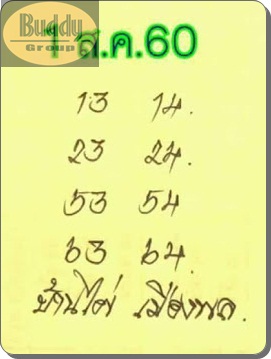 Buddy
Group
1 ส.ค.60
13 14.
23 24.
53 54
63 64.
บ้านไผ่ เมืองพล.